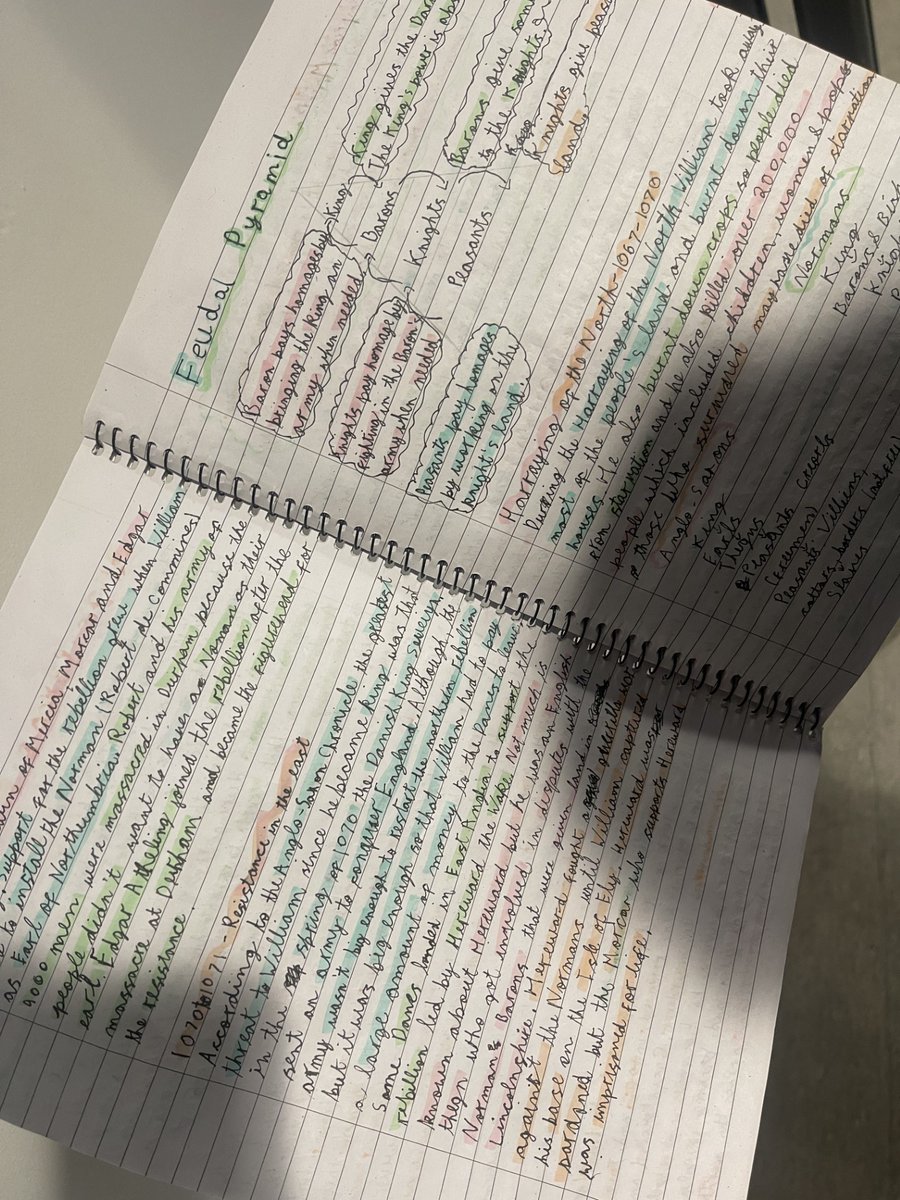 of Mercia Morcar and Edgar
support for the rebellion grew when William
as to install the Norman (Robert de Commines)
Earl of Northumbria. Robert and his army of
9000 men were massacred in Durham because the
people didn't want to have a Norman as their
earl. Edgar Atheling joined the rebellion after the
massacre at Durham and became the figurehead for
the resistance.
1070 to 1071 - Resistance in the east
According to the Anglo-Saxon Chronicle the greatest
threat to William since he became king was that
in the spring of 1070 the Danish King Sweyn
sent an army to conquer England. Although the
army wasn't big enough to
but it was big enough to restart the northern rebellion
a large amount of money so that William had to pay
Some Danes landed in East Anglia to support the
rebellion led by Hereward the Wake. Not much is
known about Hereward but he was an English
thegn who got involved in disputes with the
Norman Barons that were given land in
Lincolnshire. Hereward fought a guerilla war
against the Normans until William captured
his base on the isle of Ely. Hereward was
pardoned but the Morcar who supports Hereward
was imprisoned for life.
Feudal Pyramid
King gives the Bar
The King's power is abs
Barons give som
to the Knights
Knights give peas
land
King
Barons
Knights
Peasants
Bacon pays homages by
bringing the King an
army when needed
Knights pay homage by
fighting in the Baron's
army when needed
Peasants pay homages
by working on the
knight's land.
Harraying of the North - 1067-1070
During the Harraying of the North William took away
most of the people's land and burnt down their
houses. He also burnt down crops so people died
from starvation and he also killed over 200,000
people which included children, women &
those who survived may have died of starvation
Anglo-Saxons
King
Earls
Thegns
Peasants
(freeman) ceorls
Peasant Villiens
cottars bordars (not free)
Slaves
Normans
King
Barons & Bish
Knigh